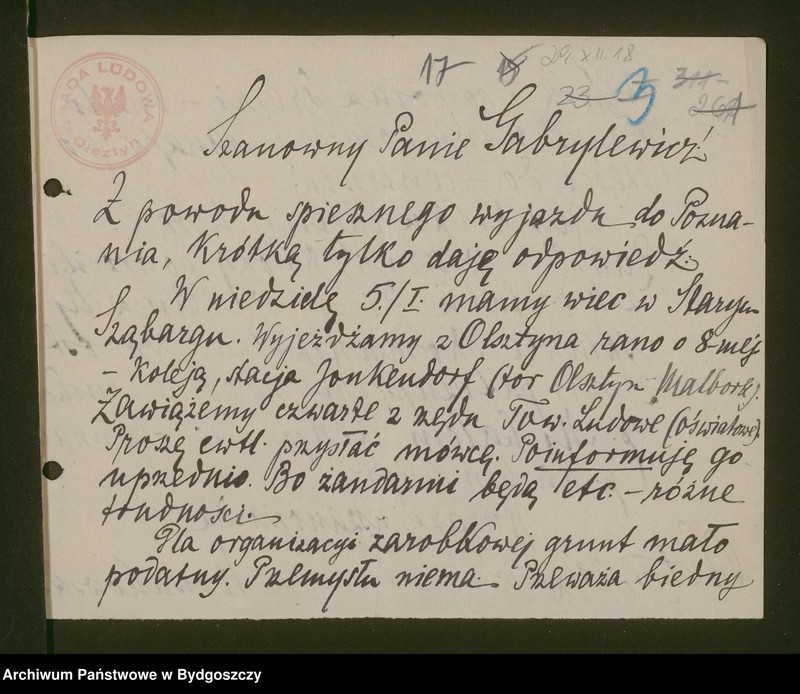 RADA LUDOWA
Olsztyn
17 18 29. XII. 18
23 3 311
261
Szanowny Panie Gabrylewicz!
Z powodu spiesznego wyjazdu do Pozna-
nia, krótką tylko daję odpowiedź.
W niedzielę 5./I. mamy wiec w Starym
Sząbargu. Wyjeżdżamy z Olsztyna rano o 8-mej
– koleją, stacja Jonkendorf (tor Olsztyn Malbork).
Zawiążemy czwarte z rzędu Tow. Ludowe (oświatowe).
Proszę ewtl. przysłać mówcę. Poinformuję go
uprzednio. Bo żandarmi będą etc. – różne
trudności.
Dla organizacyi zarobkowej grunt mało
podatny. Przemysłu niema. Przeważa biedny
Archiwum Państwowe w Bydgoszczy